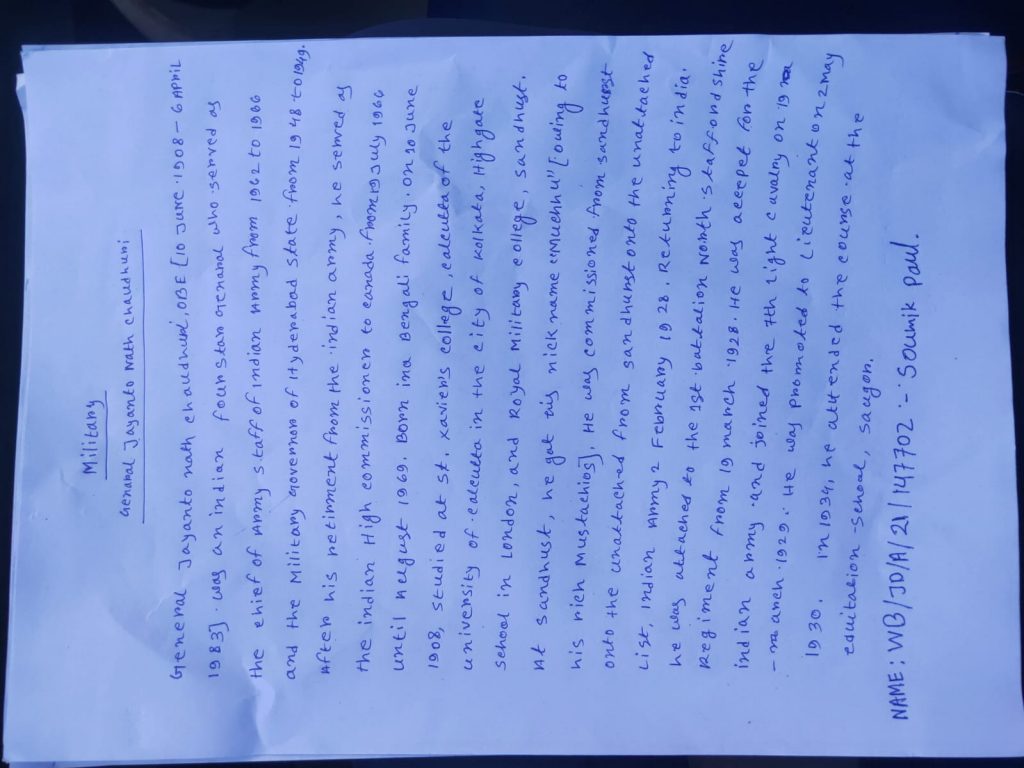 Military
General Jayanto Nath chaudhuri
General Jayanto nath chaudhuri, OBE [10 June 1908 - 6 April
1983]. was an indian four star General who served as
the chief of Army staff of indian Army from 1962 to 1966
and the Military Governor of Hyderabad state from 1948 to 1949.
After his retirment from the indian army, he served as
the indian High commissioner to canada from 19 July 1966
until August 1969. Born in a Bengali family. on 10 June
1908, studied at st. xavier's college, calcutta of the
university of calcutta in the city of kolkata, Highgate
school in London, and Royal Military college, sandhust.
At sandhust, he got his nick name "Muchhu" [owing to
his rich Mustachios], He was commissioned from sandhurst
onto the unattached from sandhurst onto the unattached
List, Indian Army 2 February 1928. Returning to india.
he was attached to the 1st batalion North staffordshire
Regiment from 19 march 1928. He was accept for the
indian army and joined the 7th light cavalry on 19
-march 1929. He was promoted to Lieutenant on 2 may
1930. In 1934, he attended the course at the
equitation school, saugor.
NAME: WB/JD/A/21/147702 :- Soumik Paul.